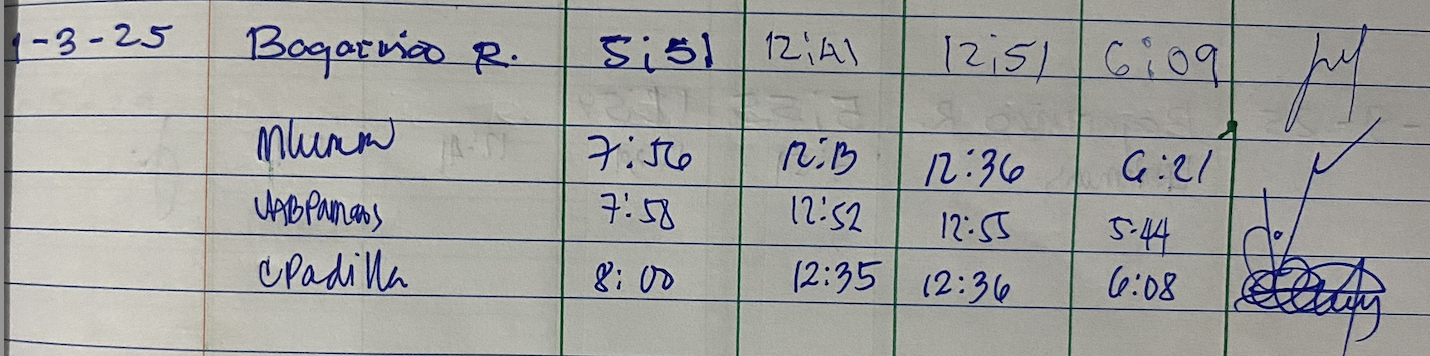 1-3-25 Bagarino R. 5:51 12:41 12:51 6:09
7:56 12:13 12:36 6:21
7:58 12:52 12:55 5:44
CPadilla 8:00 12:35 12:36 6:08